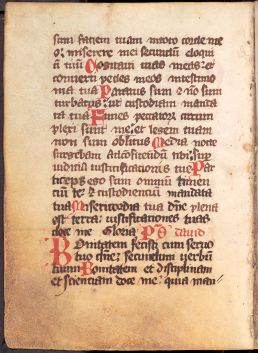 sum faciem tuam in toto corde me
o: miserere mei secundum eloqui
um tuum Cogitavi vias meas: et
converti pedes meos in testimo
nia tua Paratus sum et nō sum
turbatus: ut custodiam manda
ta tua Funes peccatorum circum
plexi sunt me: et legem tuam
non sum oblitus Media nocte
surgebam ad cōfitendū tibi: suꝑ
iudicia iustificationis tue Par
ticeps ego sum omniū timen
ciū te: et custodienciū mandata
tua Misericordia tua dñe plena
est terra: iustificationes tuas
doce me Gloria Ps david
Bonitatem fecisti cum servo
tuo dñe: secundum verbum
tuum Bonitatem et disciplinam
et scienciam doce me quia man